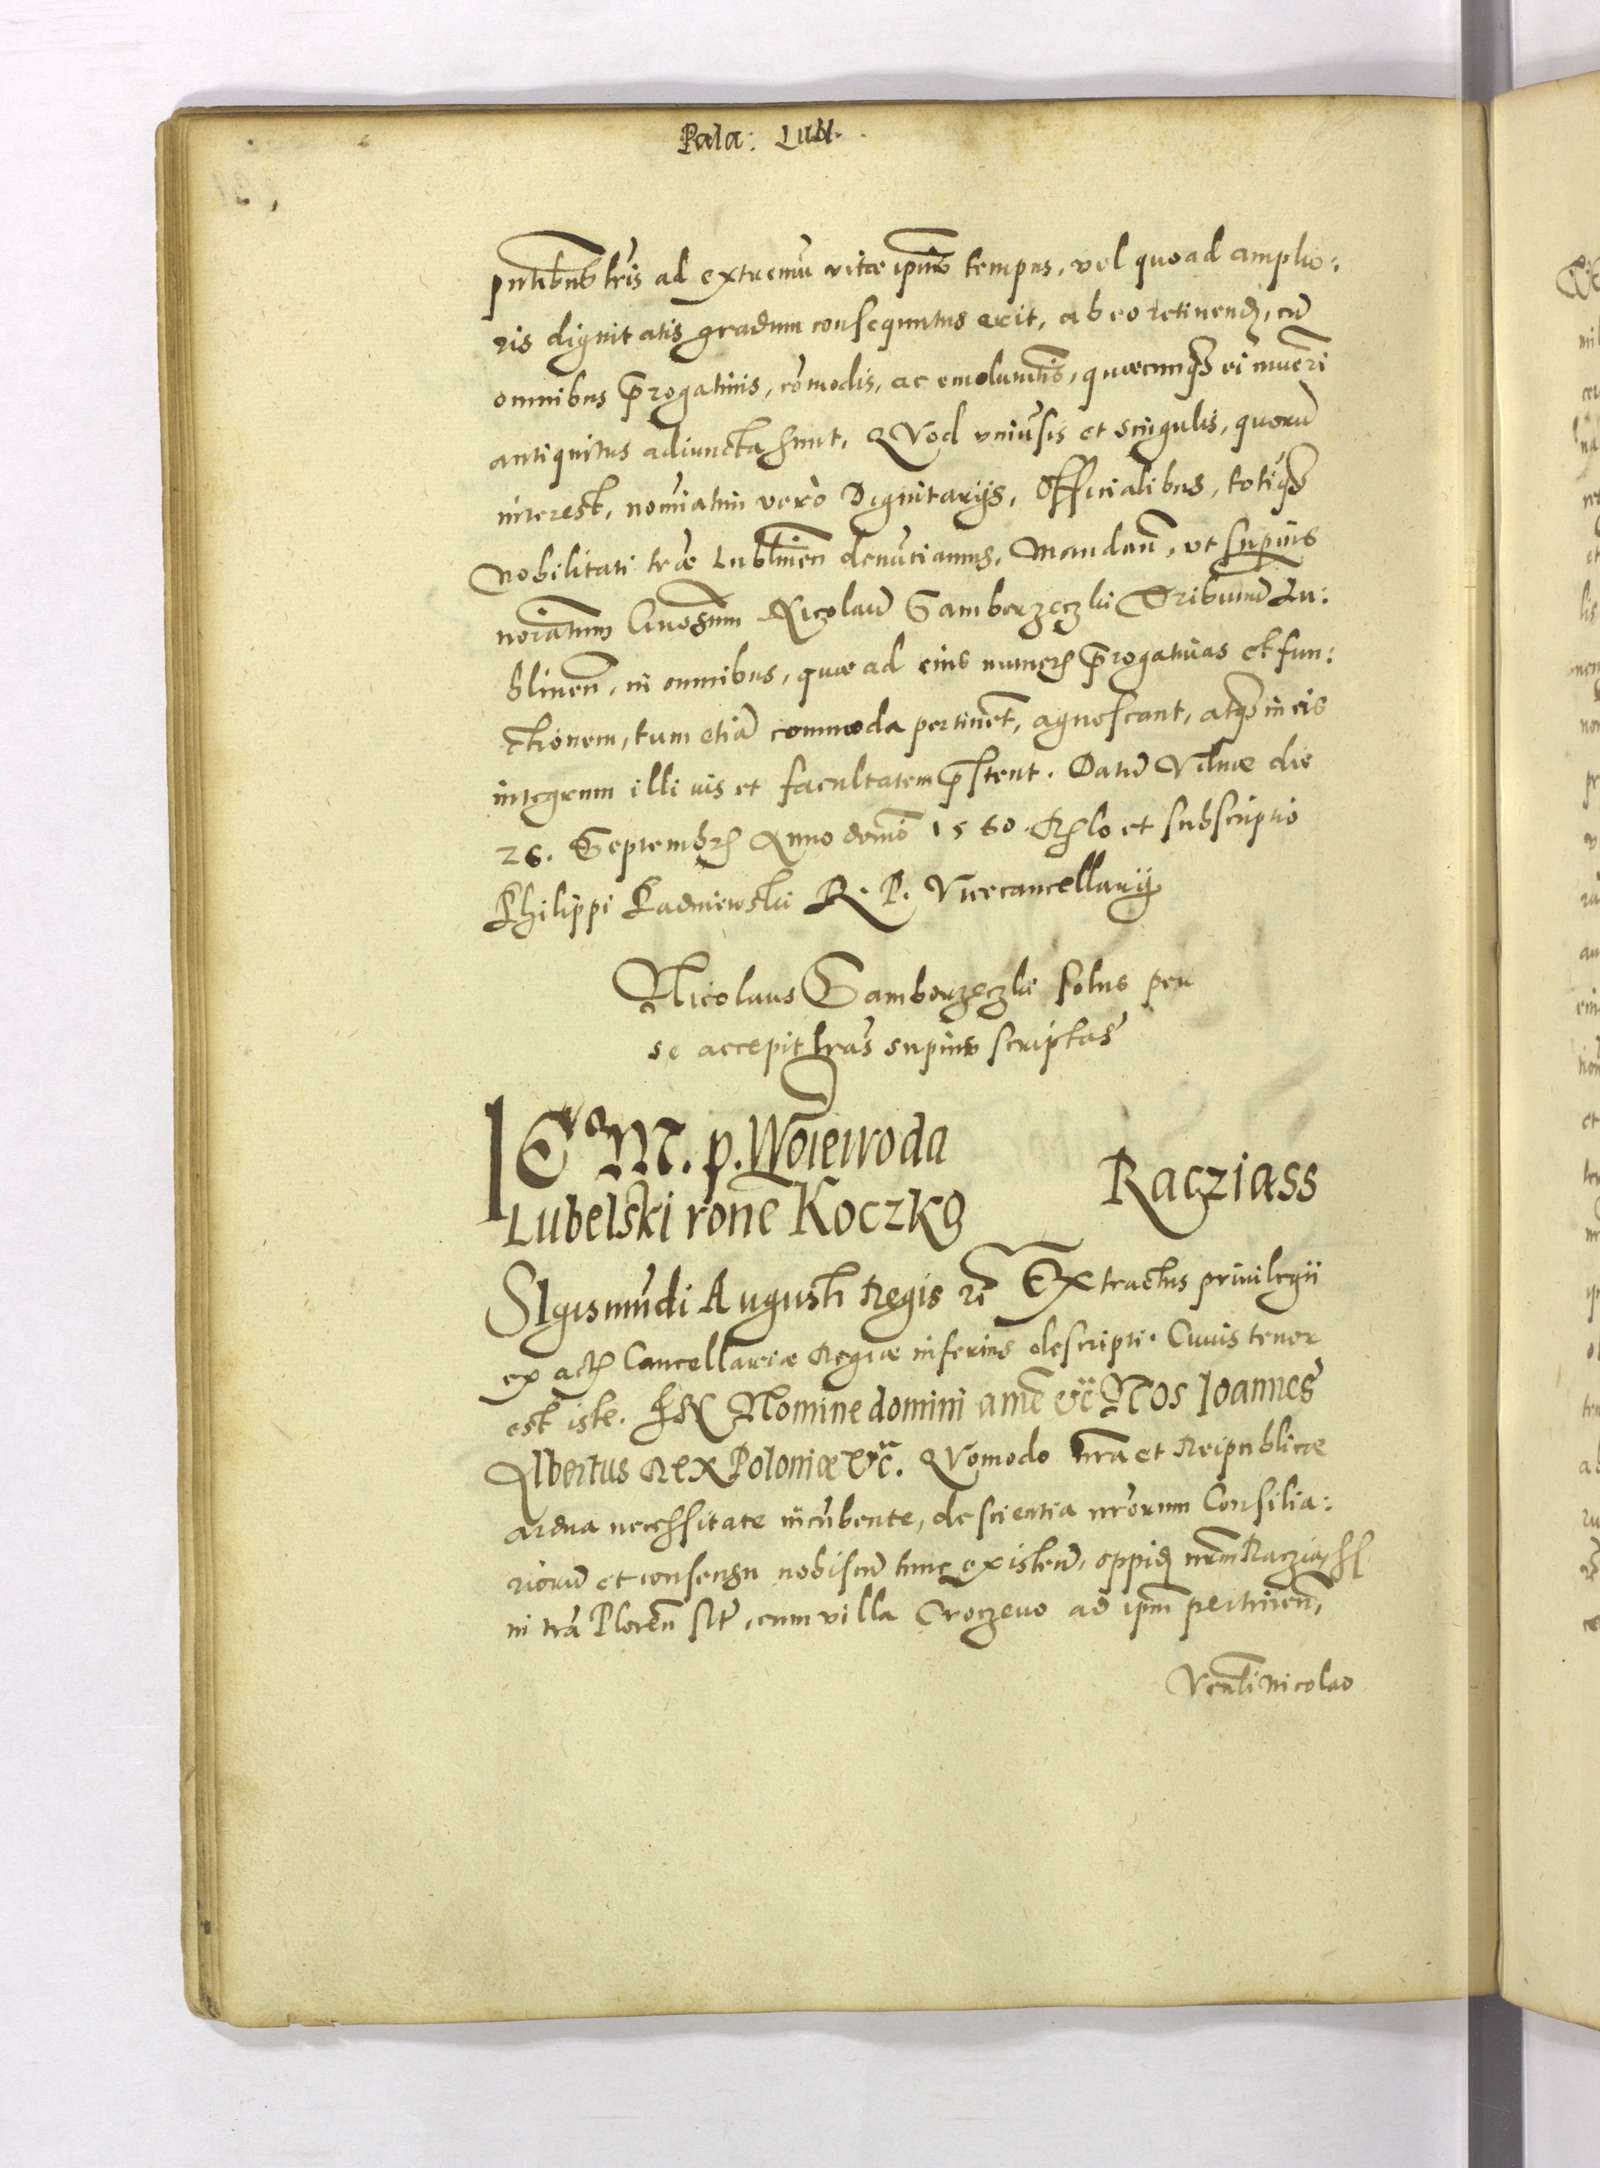 Pala: Lubl.
pntibus lris ad extremu vitæ ipius tempus, vel quoad amplio:
ris dignitatis gradum consequutus erit, ab eo retinend, cu
omnibus prrogatiuis, comodis, ac emolumtis, quæcunq ei muneri
antiquitus adiuncta sunt. QVod vniusis et singulis, quoru
interest, nominatim vero Dignitarijs, Officialibus, totiq
Nobilitati træ Lublinen denuciamus, Mandan, vt supius
noiatum Gnosum Nicolau Gamborzeczki Tribunu Lu:
blinen, in omnibus, quæ ad eius muneris prrogatiuas et fun:
ctionem, tum etia commoda pertinet, agnoscant, atq in eis
integrum illi ius et facultatem prstent. Datu Vilnæ die
26. Septembris Anno domi 1560. Rlo et subscriptio
Philippi Padniewski R. P. Vicecancellarij
Nicolaus Gamborzeczki solus per
se accepit lras supius scriptas
IE° M. p. Woiewoda
Lubelski rone Koczko
Racziass
SIgismudi Augusti Regis rc Extractus priuilegii
ex actis Cancellariæ Regiæ inferius descripti. Cuius tenor
est iste. In Nomine domini ame etc NOs Joannes
Albertus Rex Poloniæ etc. QVomodo nra et Reipublicæ
ardua necessitate incubente, de scientia nrorum Consilia:
rioru et consensu nobiscu tunc existen, oppid nrm Racziass
in tra Plocen sit, cum villa Croczeuo ad ipm pertinen,
Venli Nicolao